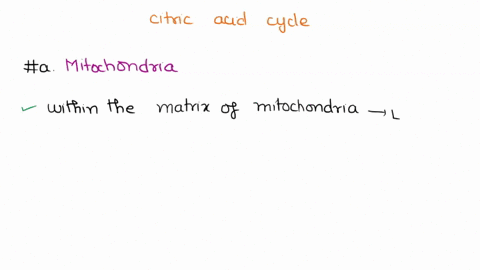 citric acid cycle
#a. Mitochondria
✓ within the matrix of mitochondria → L